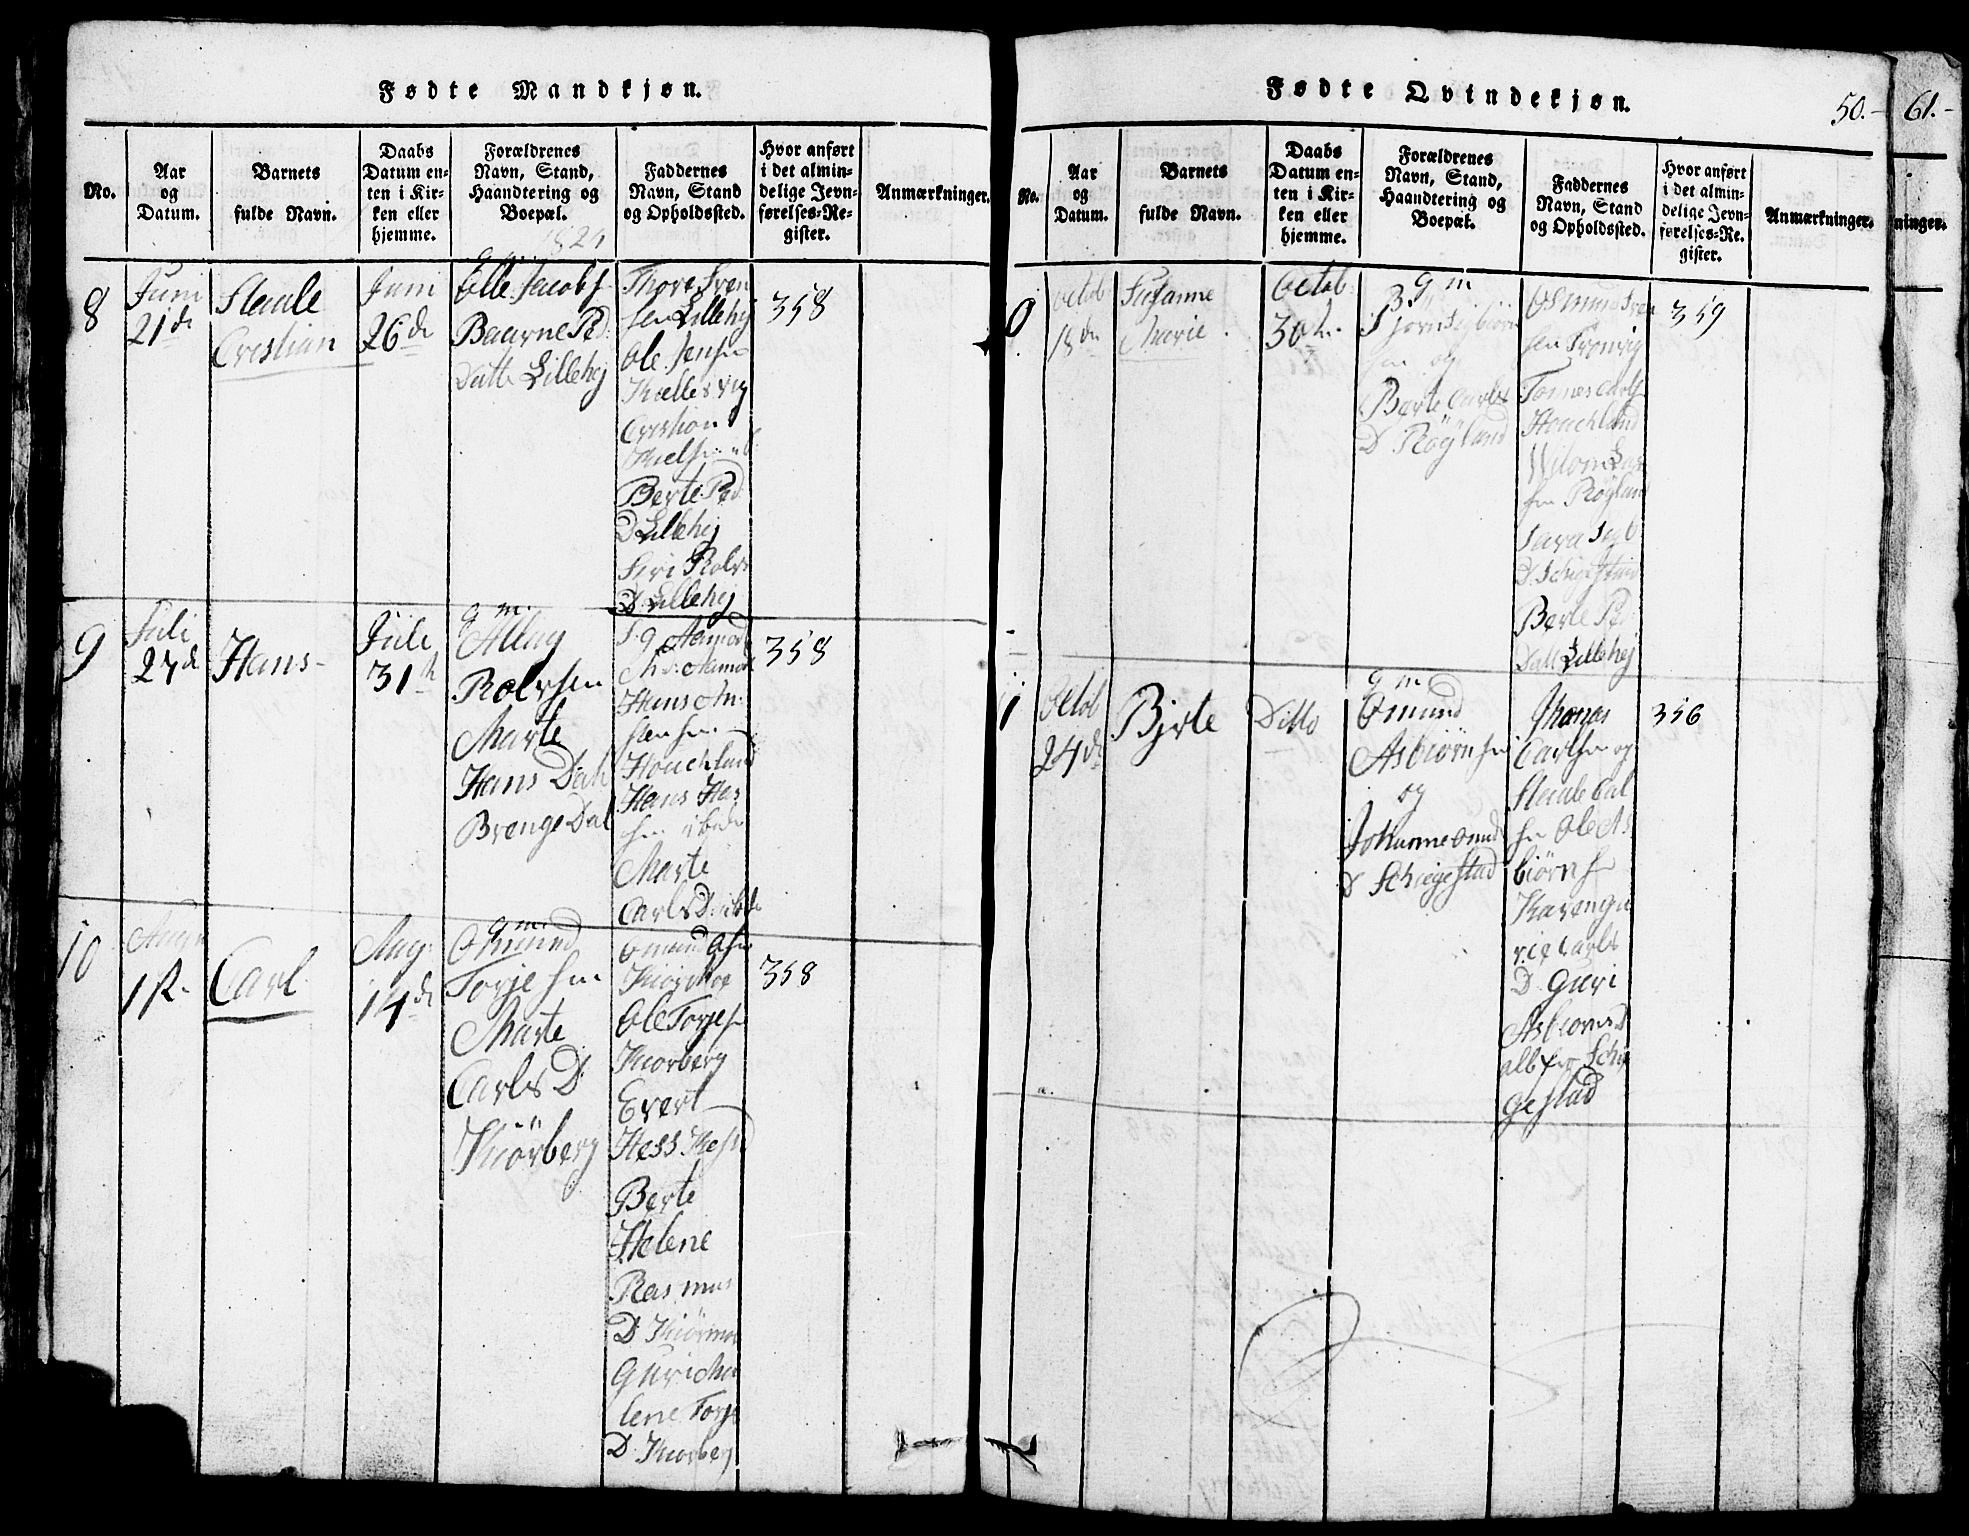 Fødte Mandkjøn.
No.
Aar
og
Datum.
Barnets
fulde Navn.
Daabs
Datum en-
ten i Kir-
ken eller
hjemme.
Forældrenes
Navn, Stand,
Haandtering og
Boepæl.
Faddernes
Navn, Stand
og Opholdssted.
Hvor anført
i det almin-
delige Jevn-
førelses-Re-
gister.
Anmærkninger.
8
Juni
21de
Staale
Cristian
Juni
26de
Elle Jacobs
Baarne Ped
Datt Lillehej
Thore Sven
sen Lillehej
Ole Jensen
Kiellesvig
Cristian
Berte Ped
D Lillehej
Siri Rolvs
D Lillehej
358
9
Juli
27de
Hans
Jule
31t
g m
Rolvsen
Marte
Hans Dat
Brenge Dal
Hans
Houchland
Hans Han
sen ibide
Marte
Carls D. ibde
358
10
Carl
Aug
14de
g m
Omund
Torjesen
Marte
Carls D
Kiörberg
Omund
Kiörmoe
Ole Torjes
Kiorberg
Evert
Hess
Berte
Helene
Rasmus
D Kiörmo
Guri Ma
lene Torje
D. Kiorberg
358
Fødte Qvindekjøn.
50.-
61.-
No.
Aar
og
Datum.
Barnets
fulde Navn.
Daabs
Datum en-
ten i Kir-
ken eller
hjemme.
Forældrenes
Navn, Stand,
Haandtering og
Boepæl.
Faddernes
Navn, Stand
og Opholdssted.
Hvor anført
i det almin-
delige Jevn-
førelses-Re-
gister.
Anmærkninger.
ninger.
0
Octob
18de
Susanne
Marie
Octob
30te
g m
sen og
Berte Carls
D Röyland
Osmund Sven
sen Tronvig
Tomas Carls
Houchland
sen Röyland
Berte Ped
Datt Lillehej
359
1
Octob
24de
Bjrte
Ditto
g m
Omund
Asbiörnsen
og
Johanne Omund
D Schiegestad
Thomas
Carlsen og
Staale Cal
sen Ole As
biörns
Karen Gu
rie Carls
D. Guri
Asbiorns D
alle fra Schie
gestad
356